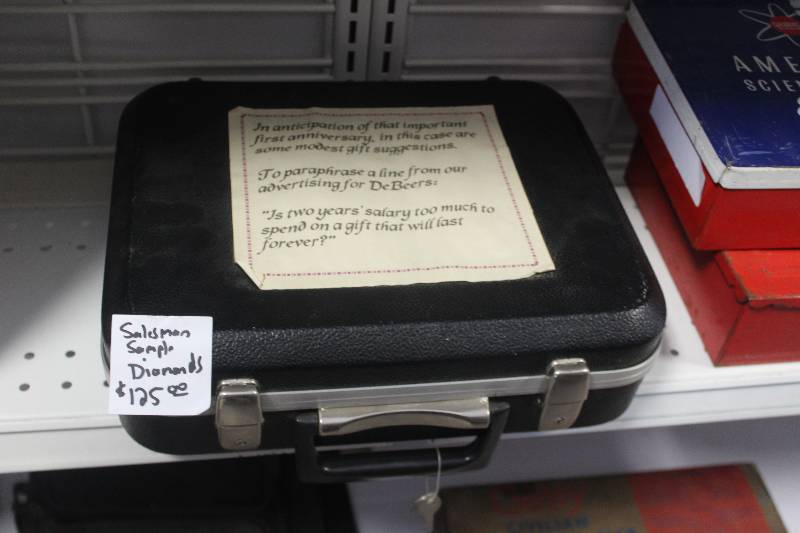 In anticipation of that important
first anniversary, in this case are
some modest gift suggestions.
To paraphrase a line from our
advertising for DeBeers:
"Is two years' salary too much to
spend on a gift that will last
forever?"
Salesman
Sample
Diamonds
$125.00
AME
SCIEN